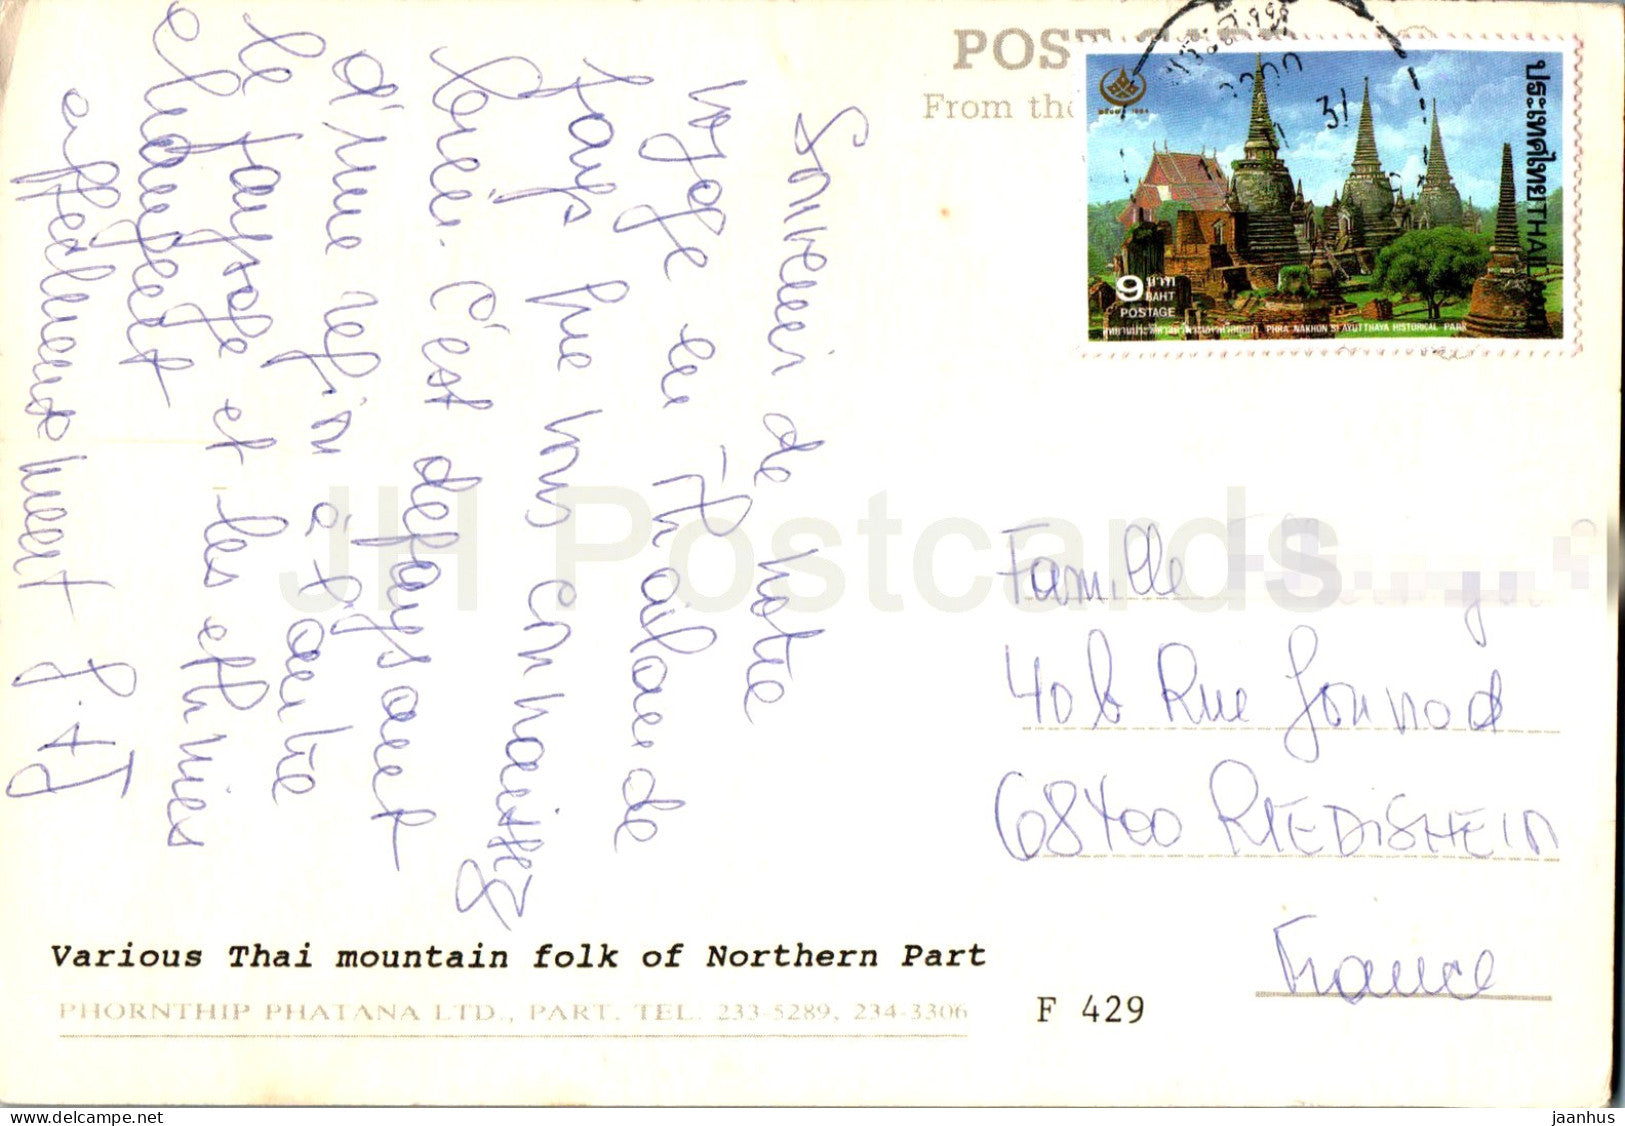 POST CARD
From the
ประเทศไทย THAI
1994
31
9 บาท
BAHT
POSTAGE
PHRA NAKHON SI AYUTTHAYA HISTORICAL PARK
Souvenir de notre
voyage en Thailande
Pays que vous connaissez
bien. C'est dépaysant
d'une région à l'autre
le paysage et les ethnies
changent
affectueusement
Famille
40 b Rue Gounod
68400 RIEDISHEIM
France
Various Thai mountain folk of Northern Part
PHORNTHIP PHATANA LTD., PART. TEL. 233-5289, 234-3306
F 429
JH Postcards
www.delcampe.net
jaanhus